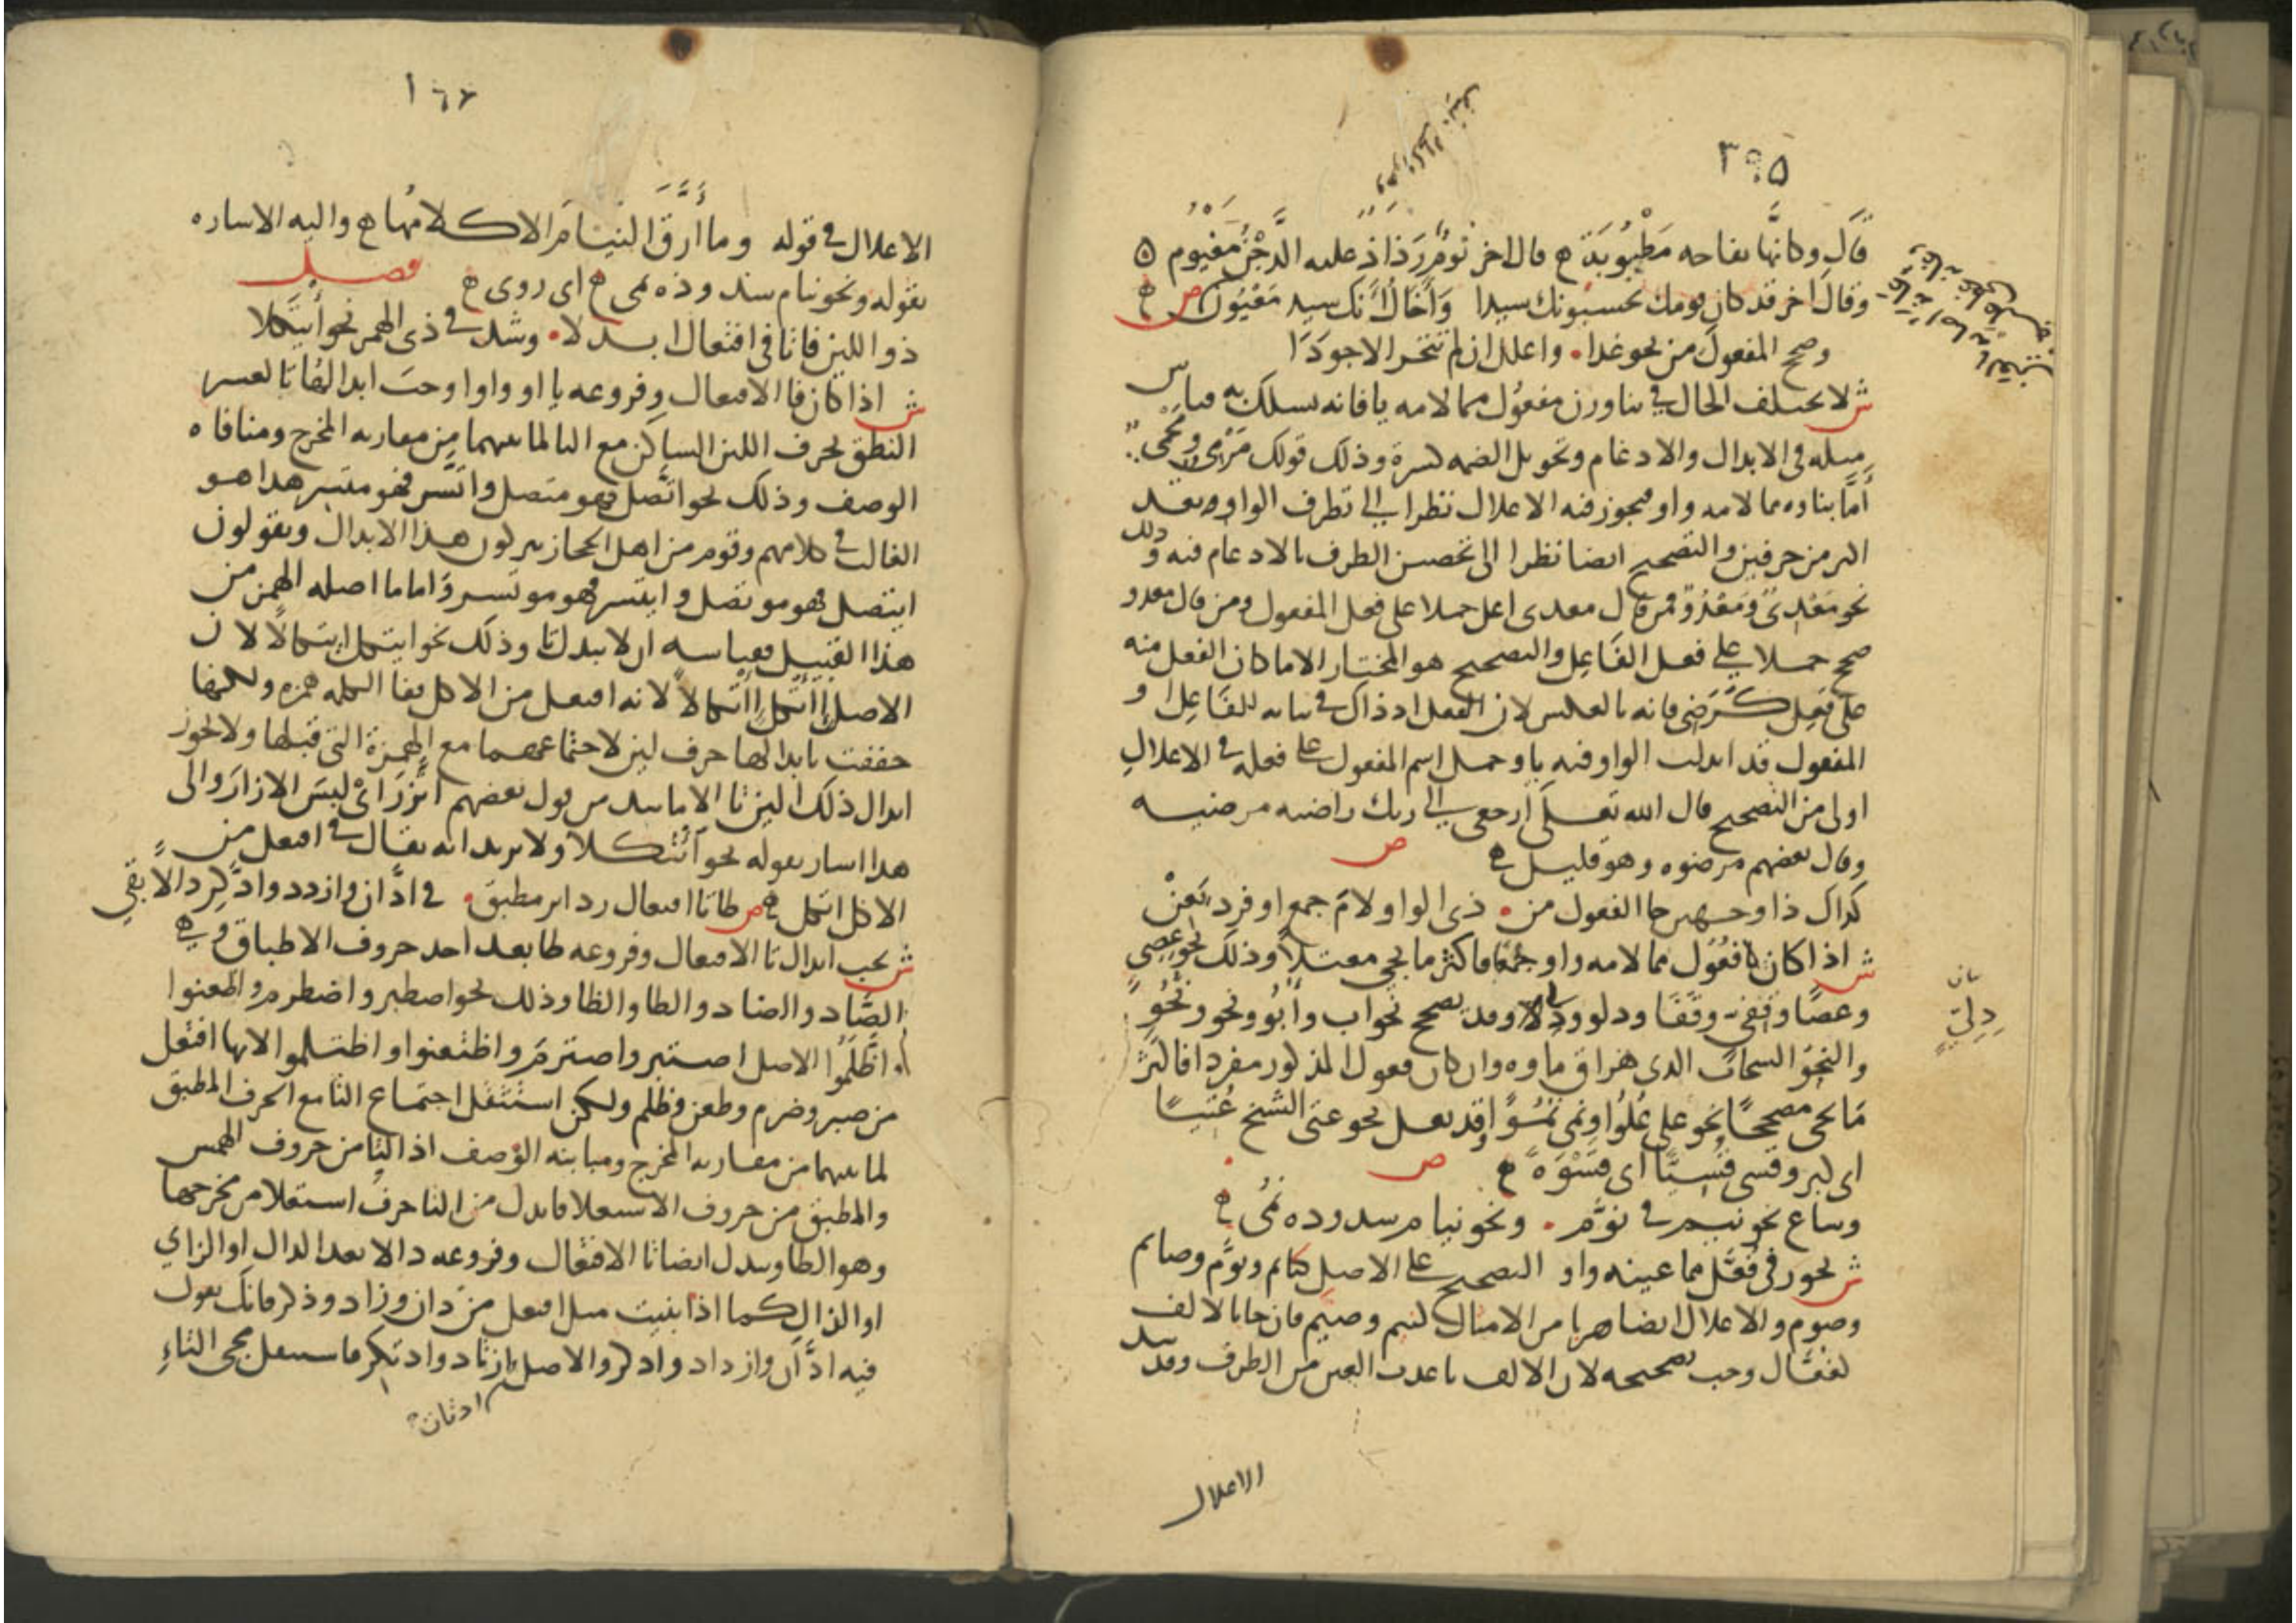 ٣٩٥
قال وكانها تفاحه مطيوبة قال اخر نوم رذاذ عليه الدجن مغيوم
وقال اخر قد كان قومك يحسبونك سيدا واخال انك سيد معيون ص
وصح المفعول من نحو عدا واعلل ان لم تتحر الاجودا
ش لا يختلف الحال في بنا وزن مفعول مما لامه يا فانه يسلك به قياس
مثله في الابدال والادغام وتحويل الضمه كسرة وذلك قولك مرمي ومحمي
أما بناوه مما لامه واو فيجوز فيه الاعلال نظرا الى تطرف الواو بعد
اكثر من حرفين والتصحيح ايضا نظرا الى تحصن الطرف بالادغام فيه وذلك
نحو معدي ومعدو فمن قال معدي اعل حملا على فعل المفعول ومن قال معدو
صحح حملا على فعل الفاعل والتصحيح هو المختار الا ما كان الفعل منه
على فعل كرضي فانه بالعكس لان الفعل اذ ذاك في بنايه للفاعل او
المفعول قد ابدلت الواو فيه يا وحمل اسم المفعول على فعله في الاعلال
اولى من التصحيح قال الله تعلى ارجعي الى ربك راضيه مرضيه
وقال بعضهم مرضوه وهو قليل ص
كذاك ذا وجهين جا الفعول من ذي الواو لام جمع او فرد يعن
ش اذا كان فعول مما لامه واو جمعا فاكثر ما يجي معتلا وذلك نحو عصي
وعصا وقفي وقفا ودلو ودلي وقد يصحح نحو اب وابو ونحو ونحو
والنجو السحاب الذي هراق ماوه وان كان فعول المذكور مفردا فاكثر
ما يجي مصححا نحو على علوا ونمى نموا وقد يعل نحو عتى الشيخ عتيا
اي كبر وقسى قسيا اي قسوة ص
وشاع نحو نيم في نوم ونحو نيام شذوذه نمي
ش يجوز في فعل مما عينه واو التصحيح على الاصل كنايم ونوم وصايم
وصوم والاعلال ايضا هربا من الامثال كنيم وصيم فان جا بالالف
كفعال وجب تصحيحه لان الالف باعدت العين من الطرف وقد شذ
الاعلال
دلي
الاعلال في قوله وما أرق النيام الا كلامها واليه الاشاره
بقوله ونحو نيام شذوذه نمي اي روي
فصل
ذو اللين فا تا في افتعال ابدلا وشذ في ذي الهمز نحو ايتكلا
ش اذا كان فا الافتعال وفروعه يا او واوا وجب ابدالها تا لعسر
النطق بحرف اللين الساكن مع التا لما بينهما من مقاربه المخرج ومنافاه
الوصف وذلك نحو اتصل فهو متصل واتسر فهو متسر هذا هو
الغالب في كلامهم وقوم من اهل الحجاز يتركون هذا الابدال ويقولون
ايتصل فهو موتصل وايتسر فهو موتسر واما ما اصله الهمز من
هذا القبيل فقياسه ان لا يبدل تا وذلك نحو ايتكل ايتكالا لان
الاصل اأتكل اأتكالا لانه افتعل من الاكل ففا الكلمه همزه ولكنها
خففت بابدالها حرف لين لاجتماعهما مع الهمزة التي قبلها ولا يجوز
ابدال ذلك اللين تا الا ما شذ من قول بعضهم اتزر اي لبس الازار والى
هذا اشار بقوله نحو ائتكلا ولا يريد انه يقال في افتعل من
الاكل اتكل ص طا تا افتعال رد اثر مطبق في ادان وازدد وادكر دالا بقي
ش يجب ابدال تا الافتعال وفروعه طا بعد احد حروف الاطباق وهي
الصاد والضاد والطا والظا وذلك نحو اصطبر واضطرم واطعنوا
واظلموا الاصل اصتبر واضترم واطتعنوا واظتلموا لانها افتعل
من صبر وضرم وطعن وظلم ولكن استثقل اجتماع التا مع الحرف المطبق
لما بينهما من مقاربه المخرج ومباينه الوصف اذ التا من حروف الهمس
والمطبق من حروف الاستعلا فابدل من التا حرف استعلا من مخرجها
وهو الطا وتبدل ايضا تا الافتعال وفروعه دالا بعد الدال او الزاي
او الذال كما اذا بنيت مثل افتعل من دان وزاد وذكر فانك تقول
فيه ادان وازداد وادكر والاصل ازتاد واذتكر فاستثقل مجي التاء
ادتان